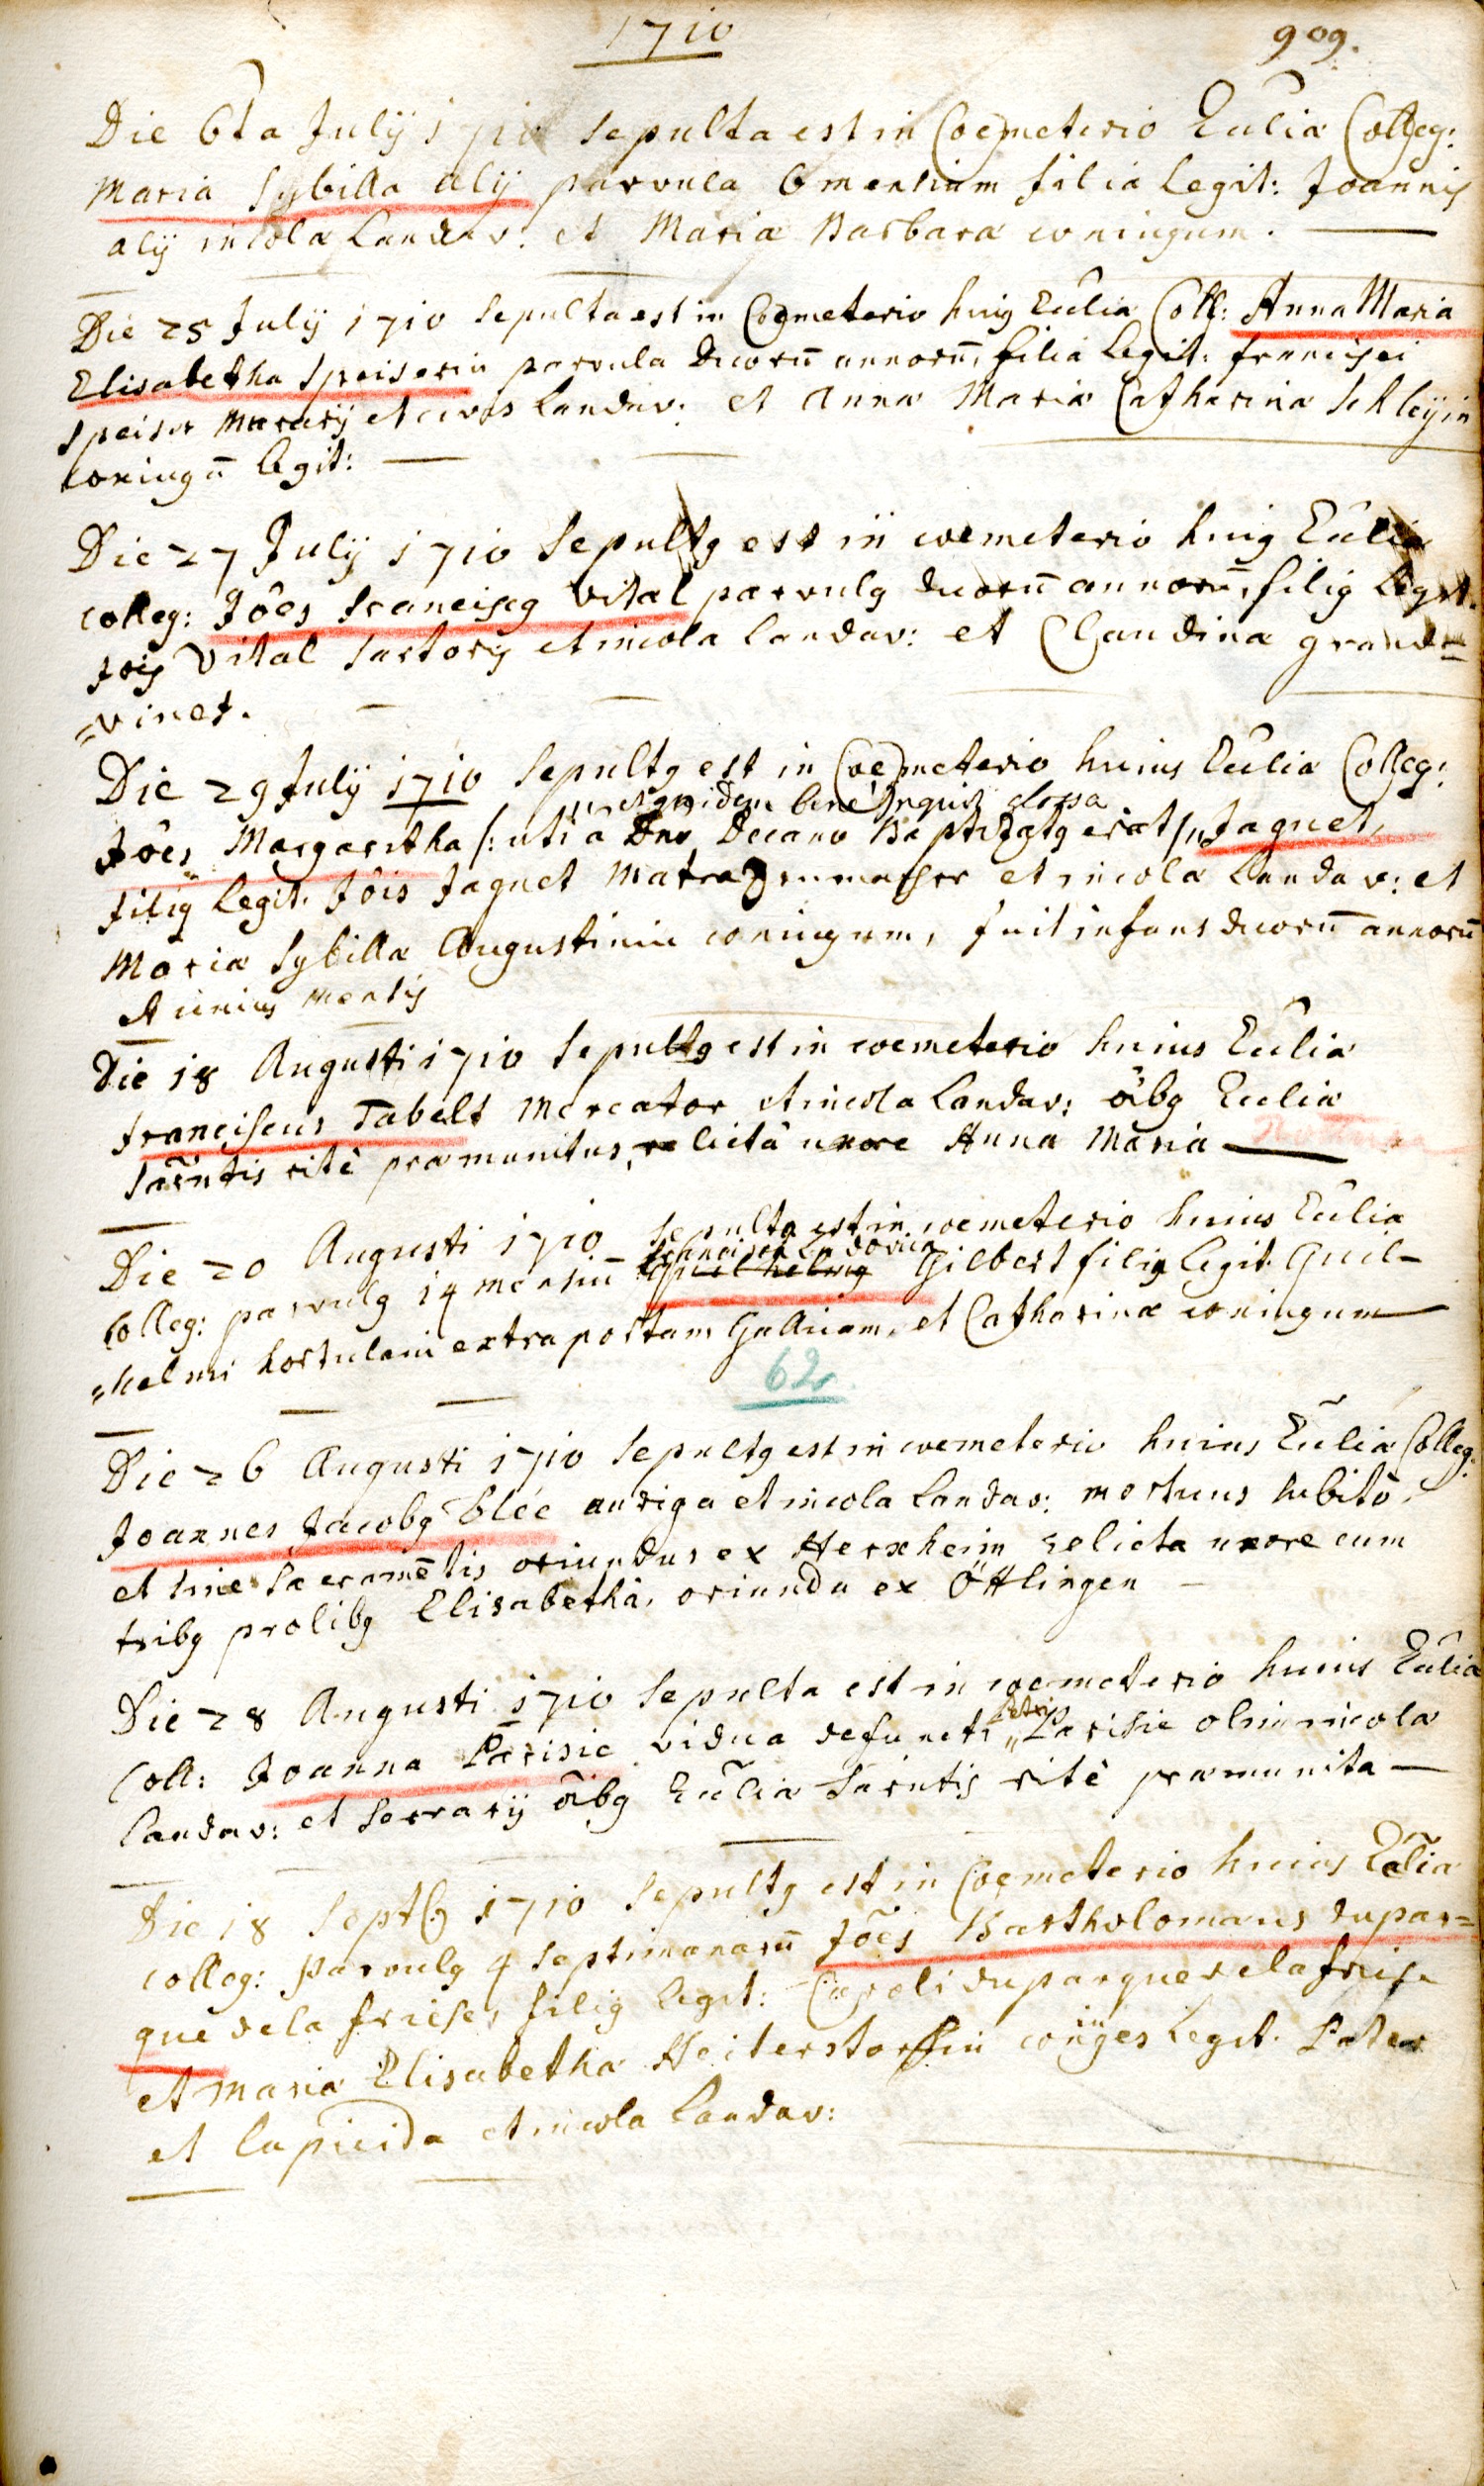 1710
909.
Die 6ta Julÿ 1710 sepulta est in Coemeterio Eccliæ Colleg:
Maria Sybilla alÿ parvula 6 mensium filia Legit: Joannis
alÿ incolæ Landav: et Mariæ Barbaræ coniugum.
Die 25 Julÿ 1710 sepulta est in Coemeterio huig Eccliæ Coll: Anna Maria
Elisabetha Speiserin parvula duorū annorū, filia Legit: francisci
Speiser et civis Landav: et Annæ Mariæ Catharinæ Schleÿin
coniugū legit:
Die 27 Julÿ 1710 Sepultg est in coemeterio huig Eccliæ
colleg: Jôes franciscg Vital parvulg duorū annorū, filig legit.
Jois Vital sartorÿ et incolæ Landav: et Claudinæ grand=
=vinet.
Die 29 Julÿ 1710 Sepultg est in Coemeterio huius Eccliæ Colleg:
Jôes Margaritha /: uti â Dno Decano Baptizatg erat /,, Jaquet,
filig Legit. Jôis Jaquet Matrazenmacher et incolæ Landav: et
Mariæ Sybillæ Augustinin coniugum, fuit infans duorū annorū
et unius mensis
Die 18 Augusti 1710 Sepultg est in coemeterio huius Eccliæ
franciscus Tabelt Mercator et incola Landav: õibg Eccliæ
sacrātis ritè præmunitus, relictâ uxore Anna Maria
Die 20 Augusti 1710 Sepultg est in coemeterio huius Eccliæ
francisca Ludovica
Colleg: parvulg 14 mensiū Guilhelmg Gilbert filig Legit. Guil-
=helmi hortulani extra portam Gallicam, et Catharinæ coniugum
62
Die 26 Augusti 1710 Sepultg est in coemeterio huius Eccliæ Colleg:
Joannes Jacobg Blée auriga et incola Landav: mortuus subitò,
et sine sacramētis oriundus ex Herxheim relicta uxore cum
tribg prolibg Elisabethâ, oriunda ex Öttlingen
Die 28 Augusti 1710 Sepulta est in coemeterio huius Eccliæ
Petri
Coll: Joanna Parisie vidua defuncti ,, Parisie olim incolæ
Landav: et serrarÿ õibg Eccliæ sacrātis ritè præmunita
Die 18 Septb 1710 Sepultg est in Coemeterio huius Eccliæ
colleg: parvulg 4 septimanarū Jôes Bartholomæus dupar=
que de la friese, filig legit: Caroli duparque de la frise
et Mariæ Elisabethæ Heiterstorffin cōiuges legit. Pater
et lapicida et incola Landav: